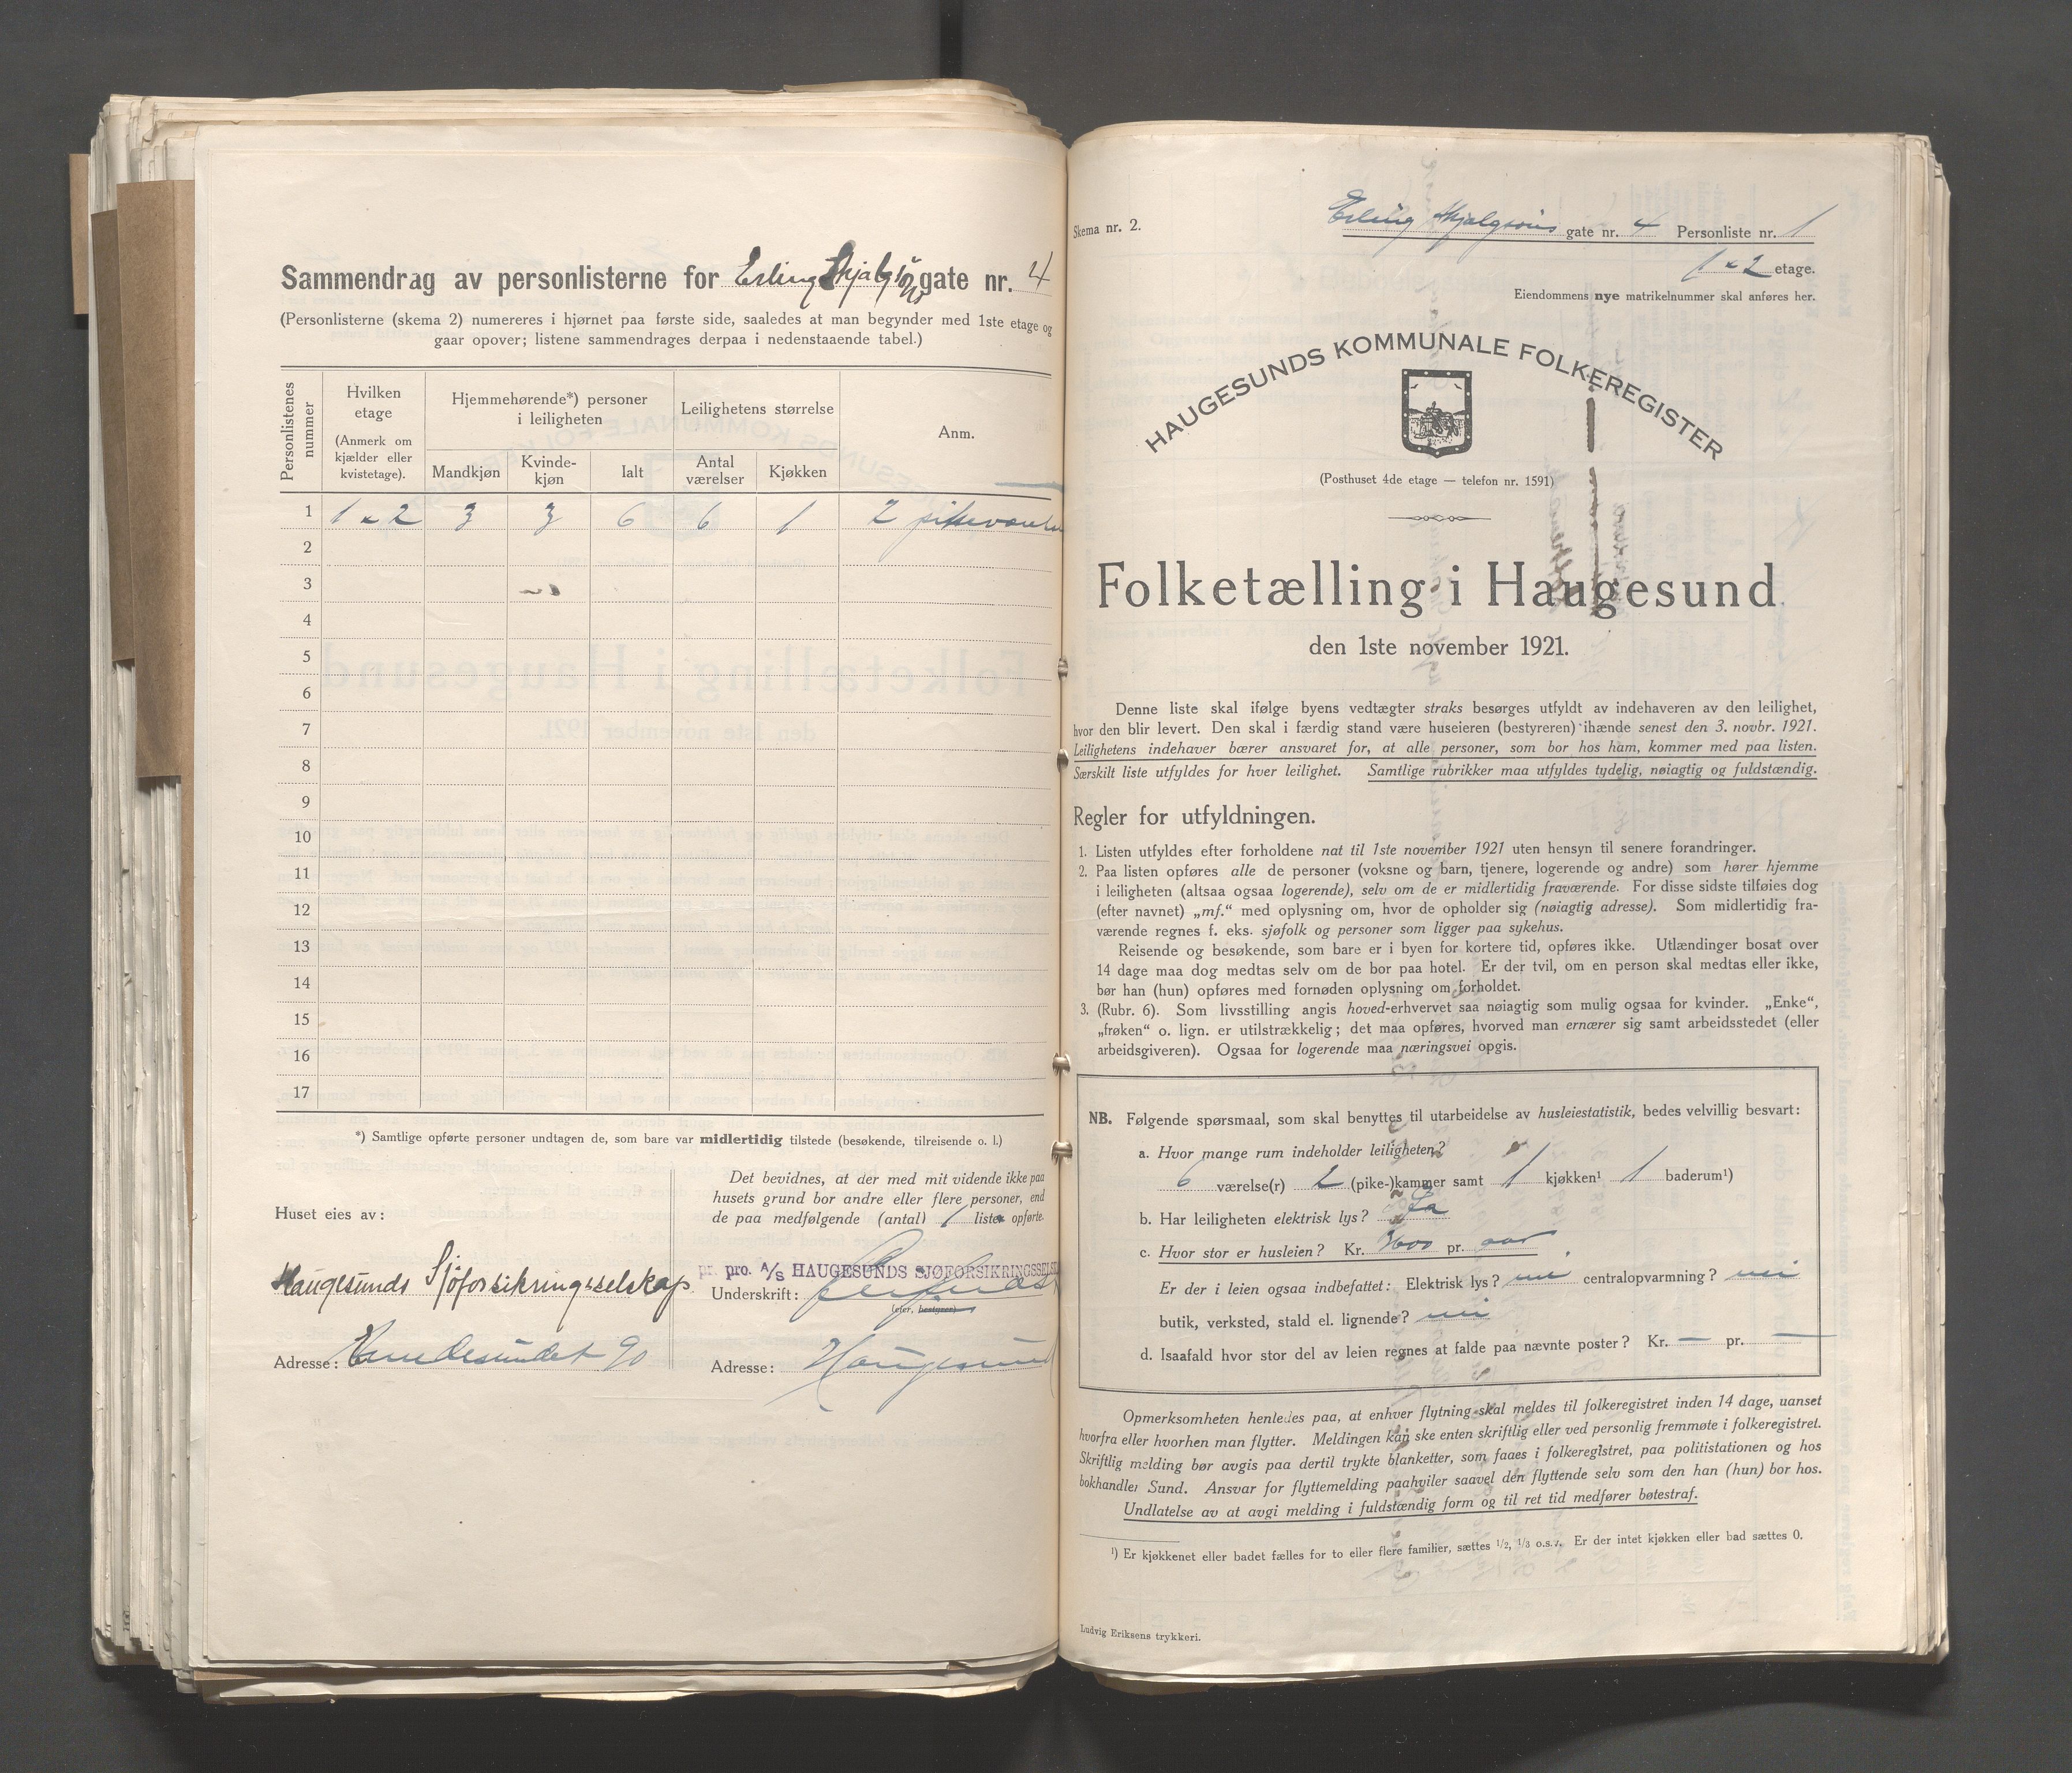 Sammendrag av personlisterne for Erling Skjalgsöns gate nr. 4
(Personlisterne (skema 2) numereres i hjørnet paa første side, saaledes at man begynder med 1ste etage og
gaar opover; listene sammendrages derpaa i nedenstaaende tabel.)
Personlistenes nummer
Hvilken etage
(Anmerk om kjælder eller kvistetage).
Hjemmehørende*) personer i leiligheten
Mandkjøn
Kvinde-kjøn
Ialt
Leilighetens størrelse
Antal værelser
Kjøkken
Anm.
1 1 & 2 3 3 6 6 1 2
2
3
4
5
6
7
8
9
10
11
12
13
14
15
16
17
*) Samtlige opførte personer undtagen de, som bare var midlertidig tilstede (besøkende, tilreisende o. l.)
Huset eies av:
Haugesunds Sjöforsikringsselskap
Adresse: 90
Det bevidnes, at der med mit vidende ikke paa
husets grund bor andre eller flere personer, end
de paa medfølgende (antal) 1 lister opførte.
pr. pro. A/S HAUGESUNDS SJØFORSIKRINGSSELSK
Underskrift:
(eier, bestyrer)
Adresse: Haugesund
Skema nr. 2.
Erling Skjalgsöns gate nr. 4 Personliste nr. 1
1 & 2 etage.
Eiendommens nye matrikelnummer skal anføres her.
HAUGESUNDS KOMMUNALE FOLKEREGISTER
(Posthuset 4de etage — telefon nr. 1591)
Folketælling i Haugesund
den 1ste november 1921.
Denne liste skal ifølge byens vedtægter straks besørges utfyldt av indehaveren av den leilighet,
hvor den blir levert. Den skal i færdig stand være huseieren (bestyreren) ihænde senest den 3. novbr. 1921.
Leilighetens indehaver bærer ansvaret for, at alle personer, som bor hos ham, kommer med paa listen.
Særskilt liste utfyldes for hver leilighet. Samtlige rubrikker maa utfyldes tydelig, nøiagtig og fuldstændig.
Regler for utfyldningen.
1. Listen utfyldes efter forholdene nat til 1ste november 1921 uten hensyn til senere forandringer.
2. Paa listen opføres alle de personer (voksne og barn, tjenere, logerende og andre) som hører hjemme
i leiligheten (altsaa ogsaa logerende), selv om de er midlertidig fraværende. For disse sidste tilføies dog
(efter navnet) „mf.“ med oplysning om, hvor de opholder sig (nøiagtig adresse). Som midlertidig fra-
værende regnes f. eks. sjøfolk og personer som ligger paa sykehus.
Reisende og besøkende, som bare er i byen for kortere tid, opføres ikke. Utlændinger bosat over
14 dage maa dog medtas selv om de bor paa hotel. Er der tvil, om en person skal medtas eller ikke,
bør han (hun) opføres med fornøden oplysning om forholdet.
3. (Rubr. 6). Som livsstilling angis hoved-erhvervet saa nøiagtig som mulig ogsaa for kvinder. „Enke“,
„frøken“ o. lign. er utilstrækkelig; det maa opføres, hvorved man ernærer sig samt arbeidsstedet (eller
arbeidsgiveren). Ogsaa for logerende maa næringsvei opgis.
NB. Følgende spørsmaal, som skal benyttes til utarbeidelse av husleiestatistik, bedes velvillig besvart:
a. Hvor mange rum indeholder leiligheten?
6 værelse(r) 2 (pike-)kammer samt 1 kjøkken¹ 1 baderum¹)
b. Har leiligheten elektrisk lys? Ja
c. Hvor stor er husleien? Kr. 3600 pr. aar
Er der i leien ogsaa indbefattet: Elektrisk lys? nei centralopvarmning? nei
butik, verksted, stald el. lignende? nei
d. Isaafald hvor stor del av leien regnes at falde paa nævnte poster? Kr. — pr. —
Opmerksomheten henledes paa, at enhver flytning skal meldes til folkeregistret inden 14 dage, uanset
hvorfra eller hvorhen man flytter. Meldingen kan ske enten skriftlig eller ved personlig fremmøte i folkeregistret.
Skriftlig melding bør avgis paa dertil trykte blanketter, som faaes i folkeregistret, paa politistationen og hos
bokhandler Sund. Ansvar for flyttemelding paahviler saavel den flyttende selv som den han (hun) bor hos.
Undlatelse av at avgi melding i fuldstændig form og til ret tid medfører bøtestraf.
¹) Er kjøkkenet eller badet fælles for to eller flere familier, sættes 1/2, 1/3 o.s.v. Er der intet kjøkken eller bad sættes 0.
Ludvig Eriksens trykkeri.